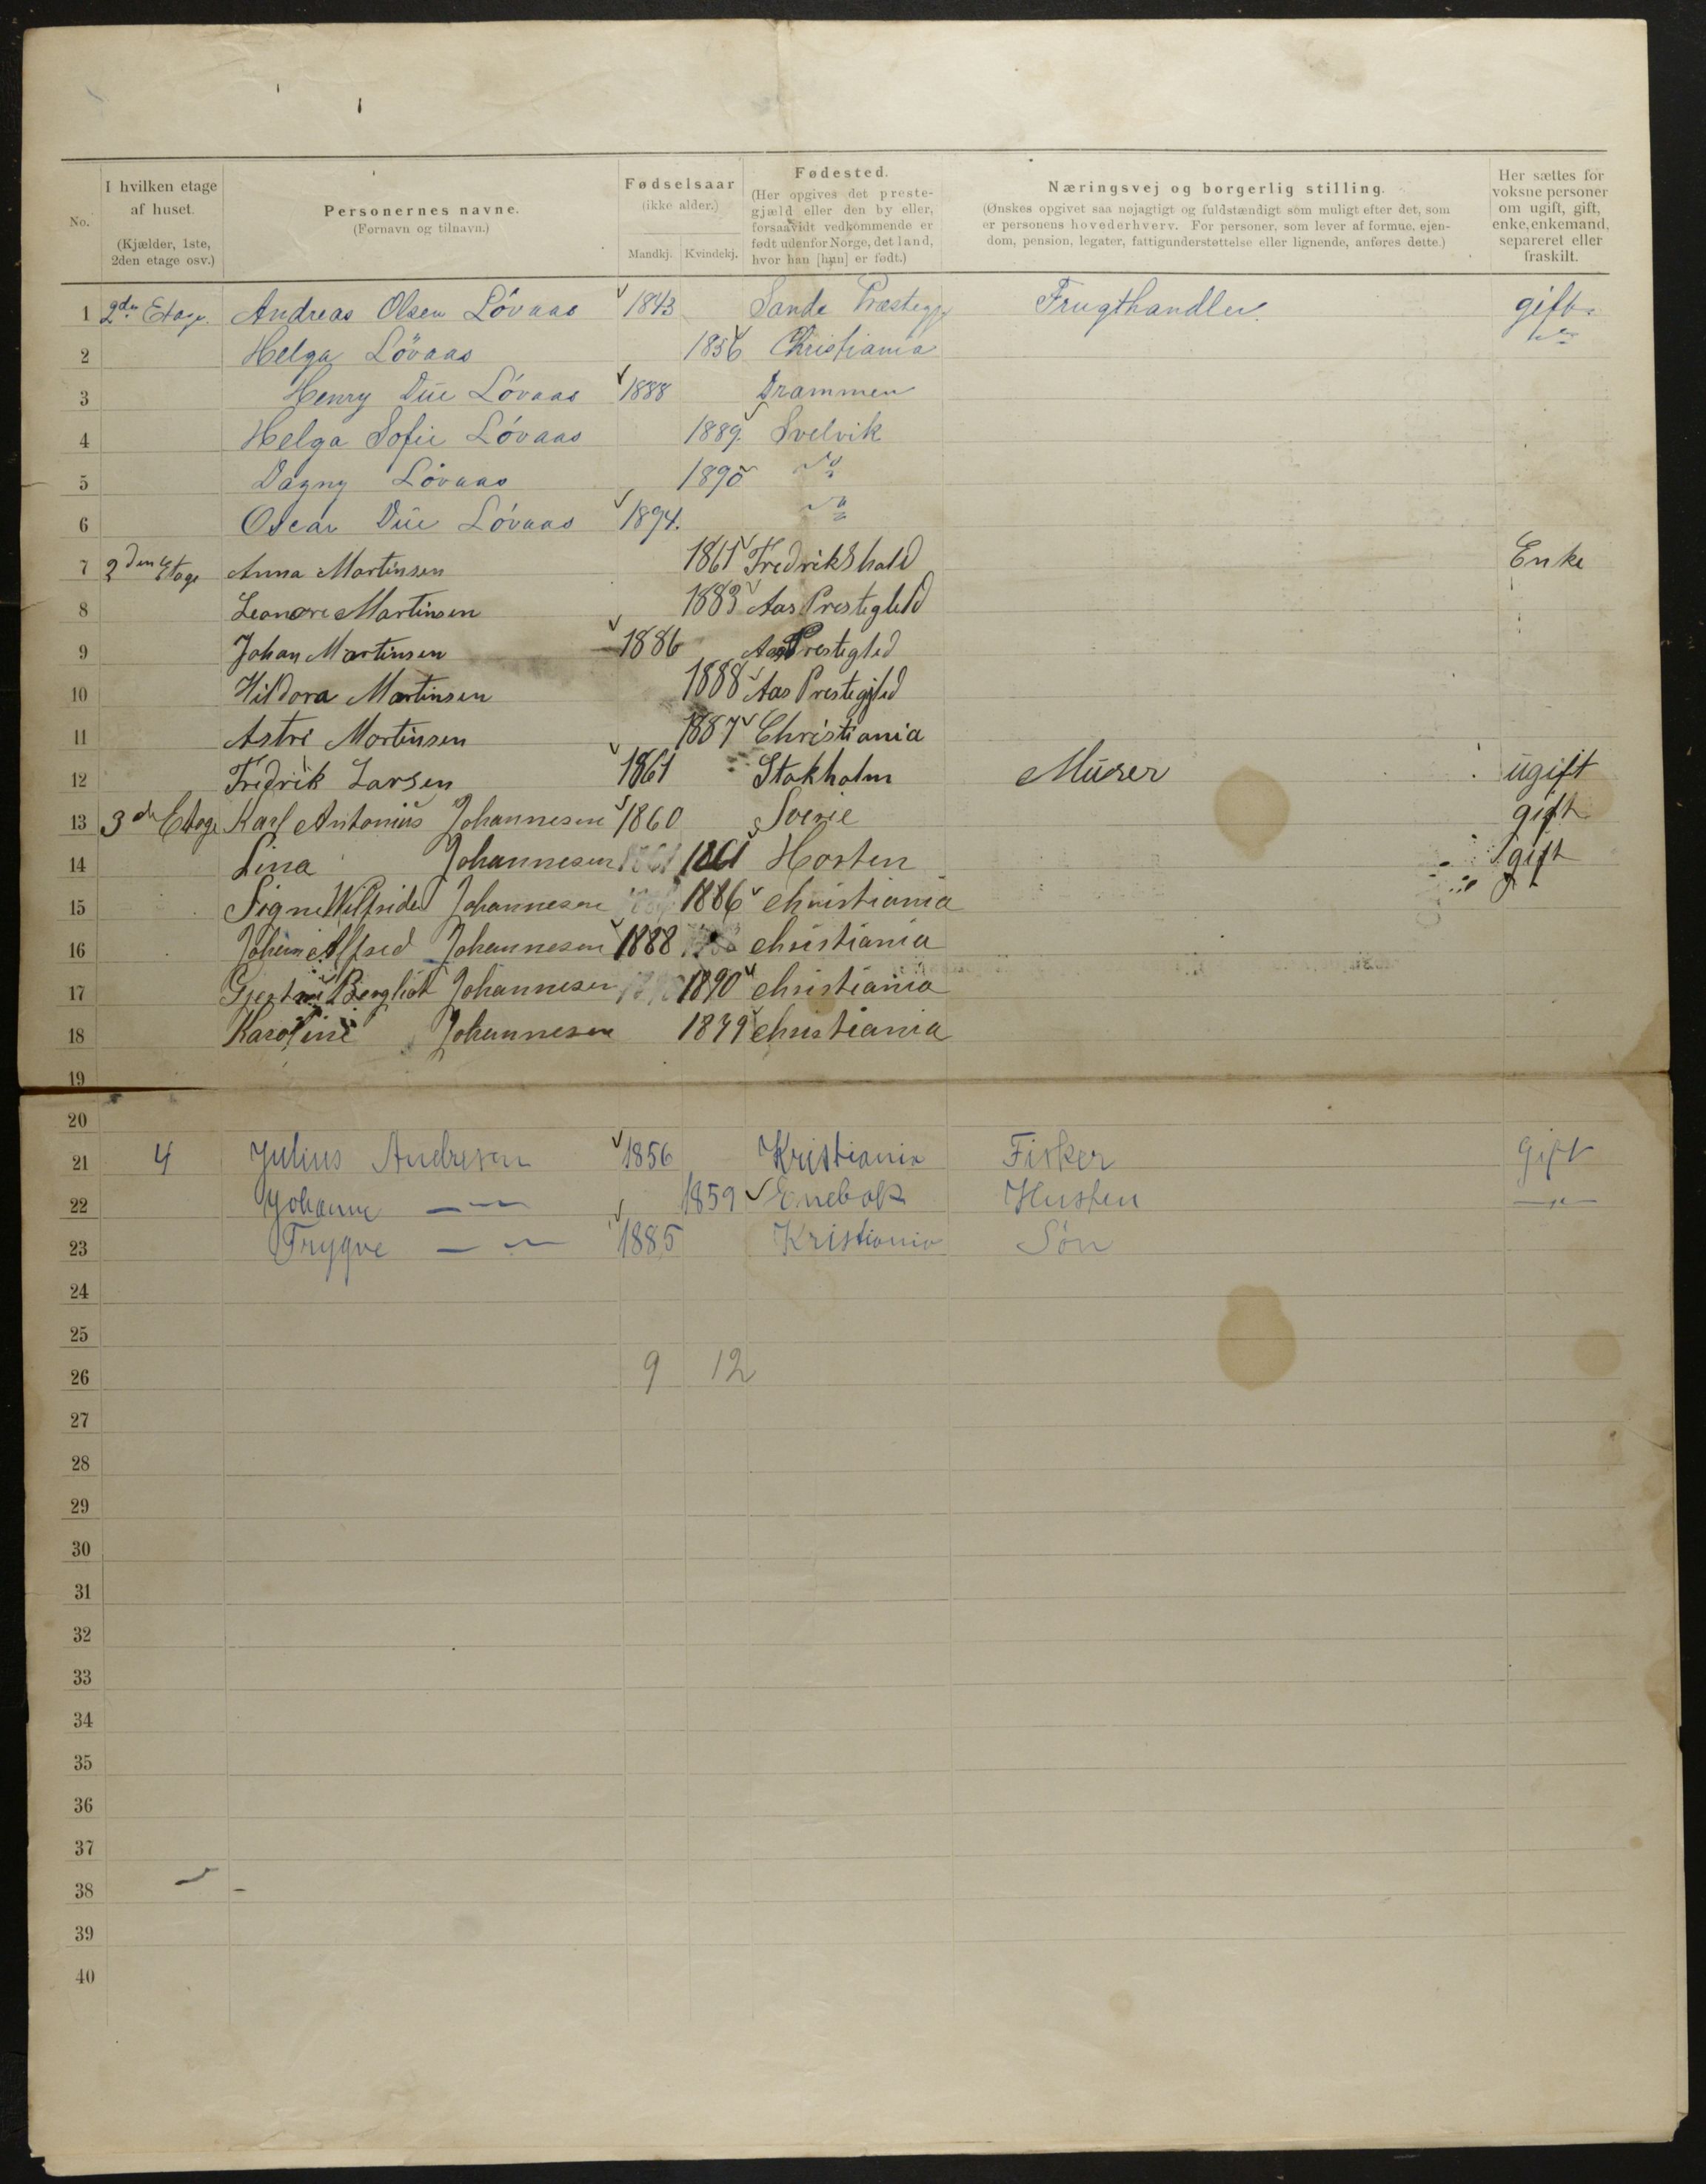 No.
I hvilken etage af huset. (Kjælder, 1ste, 2den etage osv.)
Personernes navne. (Fornavn og tilnavn.)
Fødselsaar (ikke alder.) Mandkj. Kvindekj.
Fødested. (Her opgives det prestegjæld eller den by eller, forsaavidt vedkommende er født udenfor Norge, det land, hvor han [hun] er født.)
Næringsvej og borgerlig stilling. (Ønskes opgivet saa nøjagtigt og fuldstændigt som muligt efter det, som er personens hovederhverv. For personer, som lever af formue, ejendom, pension, legater, fattigunderstøttelse eller lignende, anføres dette.)
Her sættes for voksne personer om ugift, gift, enke, enkemand, separeret eller fraskilt.
1 2den Etage. Andreas Olsen Lövaas 1843 Sande Præstegj Frugthandler. gift
2 Helga Lövaas 1856 Christiania
3 Henry Düe Lövaas 1888 Drammen
4 Helga Sofie Lövaas 1889. Svelvik
5 Dagny Lövaas 1890
6 Oscar Düe Lövaas 1894.
7 2den Etage Anna Martinsen 1861 Fredrikshald Enke
8 Leonore Martinsen 1883 Aas Prestegleld
9 Johan Martinsen 1886 Aas Prestegled
10 Hildora Martinsen 1888 Aas Prestegjled
11 Astri Martinsen 1887 Christiania
12 Fredrik Larsen 1861 Stokholm Murer ugift
13 3de Etage Karl Antonius Johannesen 1860 Sverie gift
14 Lina Johannesen 1861 Horten gift
15 Signe Wilfride Johannesen 1886 christiania
16 Johan Alfred Johannesen 1888 christiania
17 Bergliot Johannesen 1890 christiania
18 Karoline Johannesen christiania
19
20
21 4 Julius Andresen 1856 Kristiania Fisker Gift
22 Johanne — 1859 Enebak Husten —"—
23 Trygve — 1885 Kristiania Søn
24
25
26 9 12
27
28
29
30
31
32
33
34
35
36
37
38
39
40